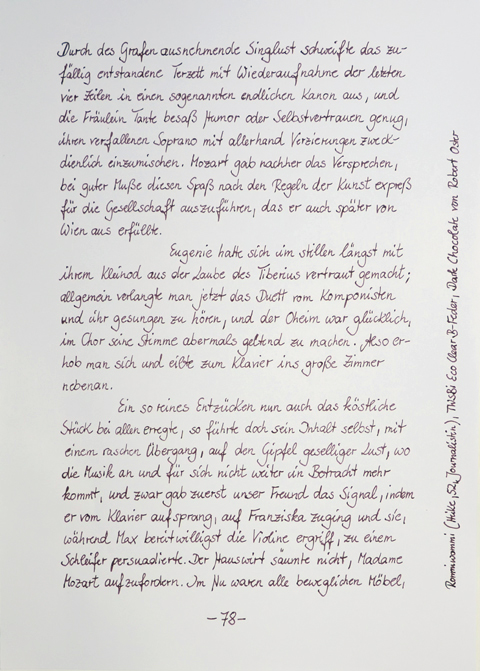 Durch des Grafen ausnehmende Singlust schweifte das zu-
fällig entstandene Terzett mit Wiederaufnahme der letzten
vier Zeilen in einen sogenannten endlichen Kanon aus, und
die Fräulein Tante besaß Humor oder Selbstvertrauen genug,
ihren verfallenen Soprano mit allerhand Verzierungen zweck-
dienlich einzumischen. Mozart gab nachher das Versprechen,
bei guter Muße diesen Spaß nach den Regeln der Kunst expreß
für die Gesellschaft auszuführen, das er auch später von
Wien aus erfüllte.
Eugenie hatte sich im stillen längst mit
ihrem Kleinod aus der Laube des Tiberius vertraut gemacht;
allgemein verlangte man jetzt das Duett vom Komponisten
und ihr gesungen zu hören, und der Oheim war glücklich,
im Chor seine Stimme abermals geltend zu machen. Also er-
hob man sich und eilte zum Klavier ins große Zimmer
nebenan.
Ein so reines Entzücken nun auch das köstliche
Stück bei allen erregte, so führte doch sein Inhalt selbst, mit
einem raschen Übergang, auf den Gipfel geselliger Lust, wo
die Musik an und für sich nicht weiter in Betracht mehr
kommt, und zwar gab zuerst unser Freund das Signal, indem
er vom Klavier aufsprang, auf Franziska zuging und sie,
während Max bereitwilligst die Violine ergriff, zu einem
Schleifer persuadierte. Der Hauswirt säumte nicht, Madame
Mozart aufzufordern. Im Nu waren alle beweglichen Möbel,
-78-
(Heike, 52, Journalistin), TWSBI Eco Clear B-Feder, Dark Chocolate von Robert Oster